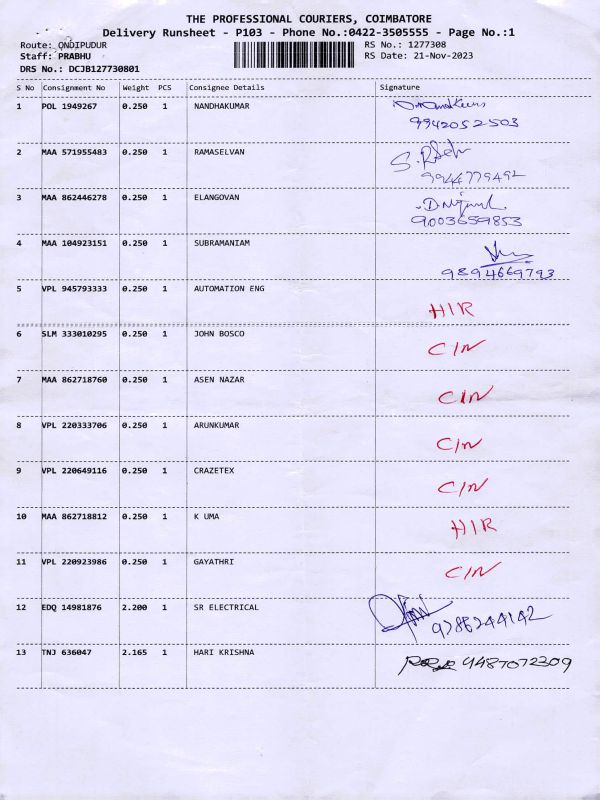 THE PROFESSIONAL COURIERS, COIMBATORE
Delivery Runsheet - P103 - Phone No.:0422-3505555 - Page No.:1
Route: ONDIPUDUR RS No.: 1277308
Staff: PRABHU RS Date: 21-Nov-2023
DRS No.: DCJB127730801
S No Consignment No Weight PCS Consignee Details Signature
1 POL 1949267 0.250 1 NANDHAKUMAR
9942052503
2 MAA 571955483 0.250 1 RAMASELVAN
9944779492
3 MAA 862446278 0.250 1 ELANGOVAN
9003659853
4 MAA 104923151 0.250 1 SUBRAMANIAM
9894669793
5 VPL 945793333 0.250 1 AUTOMATION ENG
HIR
6 SLM 333010295 0.250 1 JOHN BOSCO
C/N
7 MAA 862718760 0.250 1 ASEN NAZAR
C/N
8 VPL 220333706 0.250 1 ARUNKUMAR
C/N
9 VPL 220649116 0.250 1 CRAZETEX
C/N
10 MAA 862718812 0.250 1 K UMA
HIR
11 VPL 220923986 0.250 1 GAYATHRI
C/N
12 EDQ 14981876 2.200 1 SR ELECTRICAL
9786244142
13 TNJ 636047 2.165 1 HARI KRISHNA
9487072309